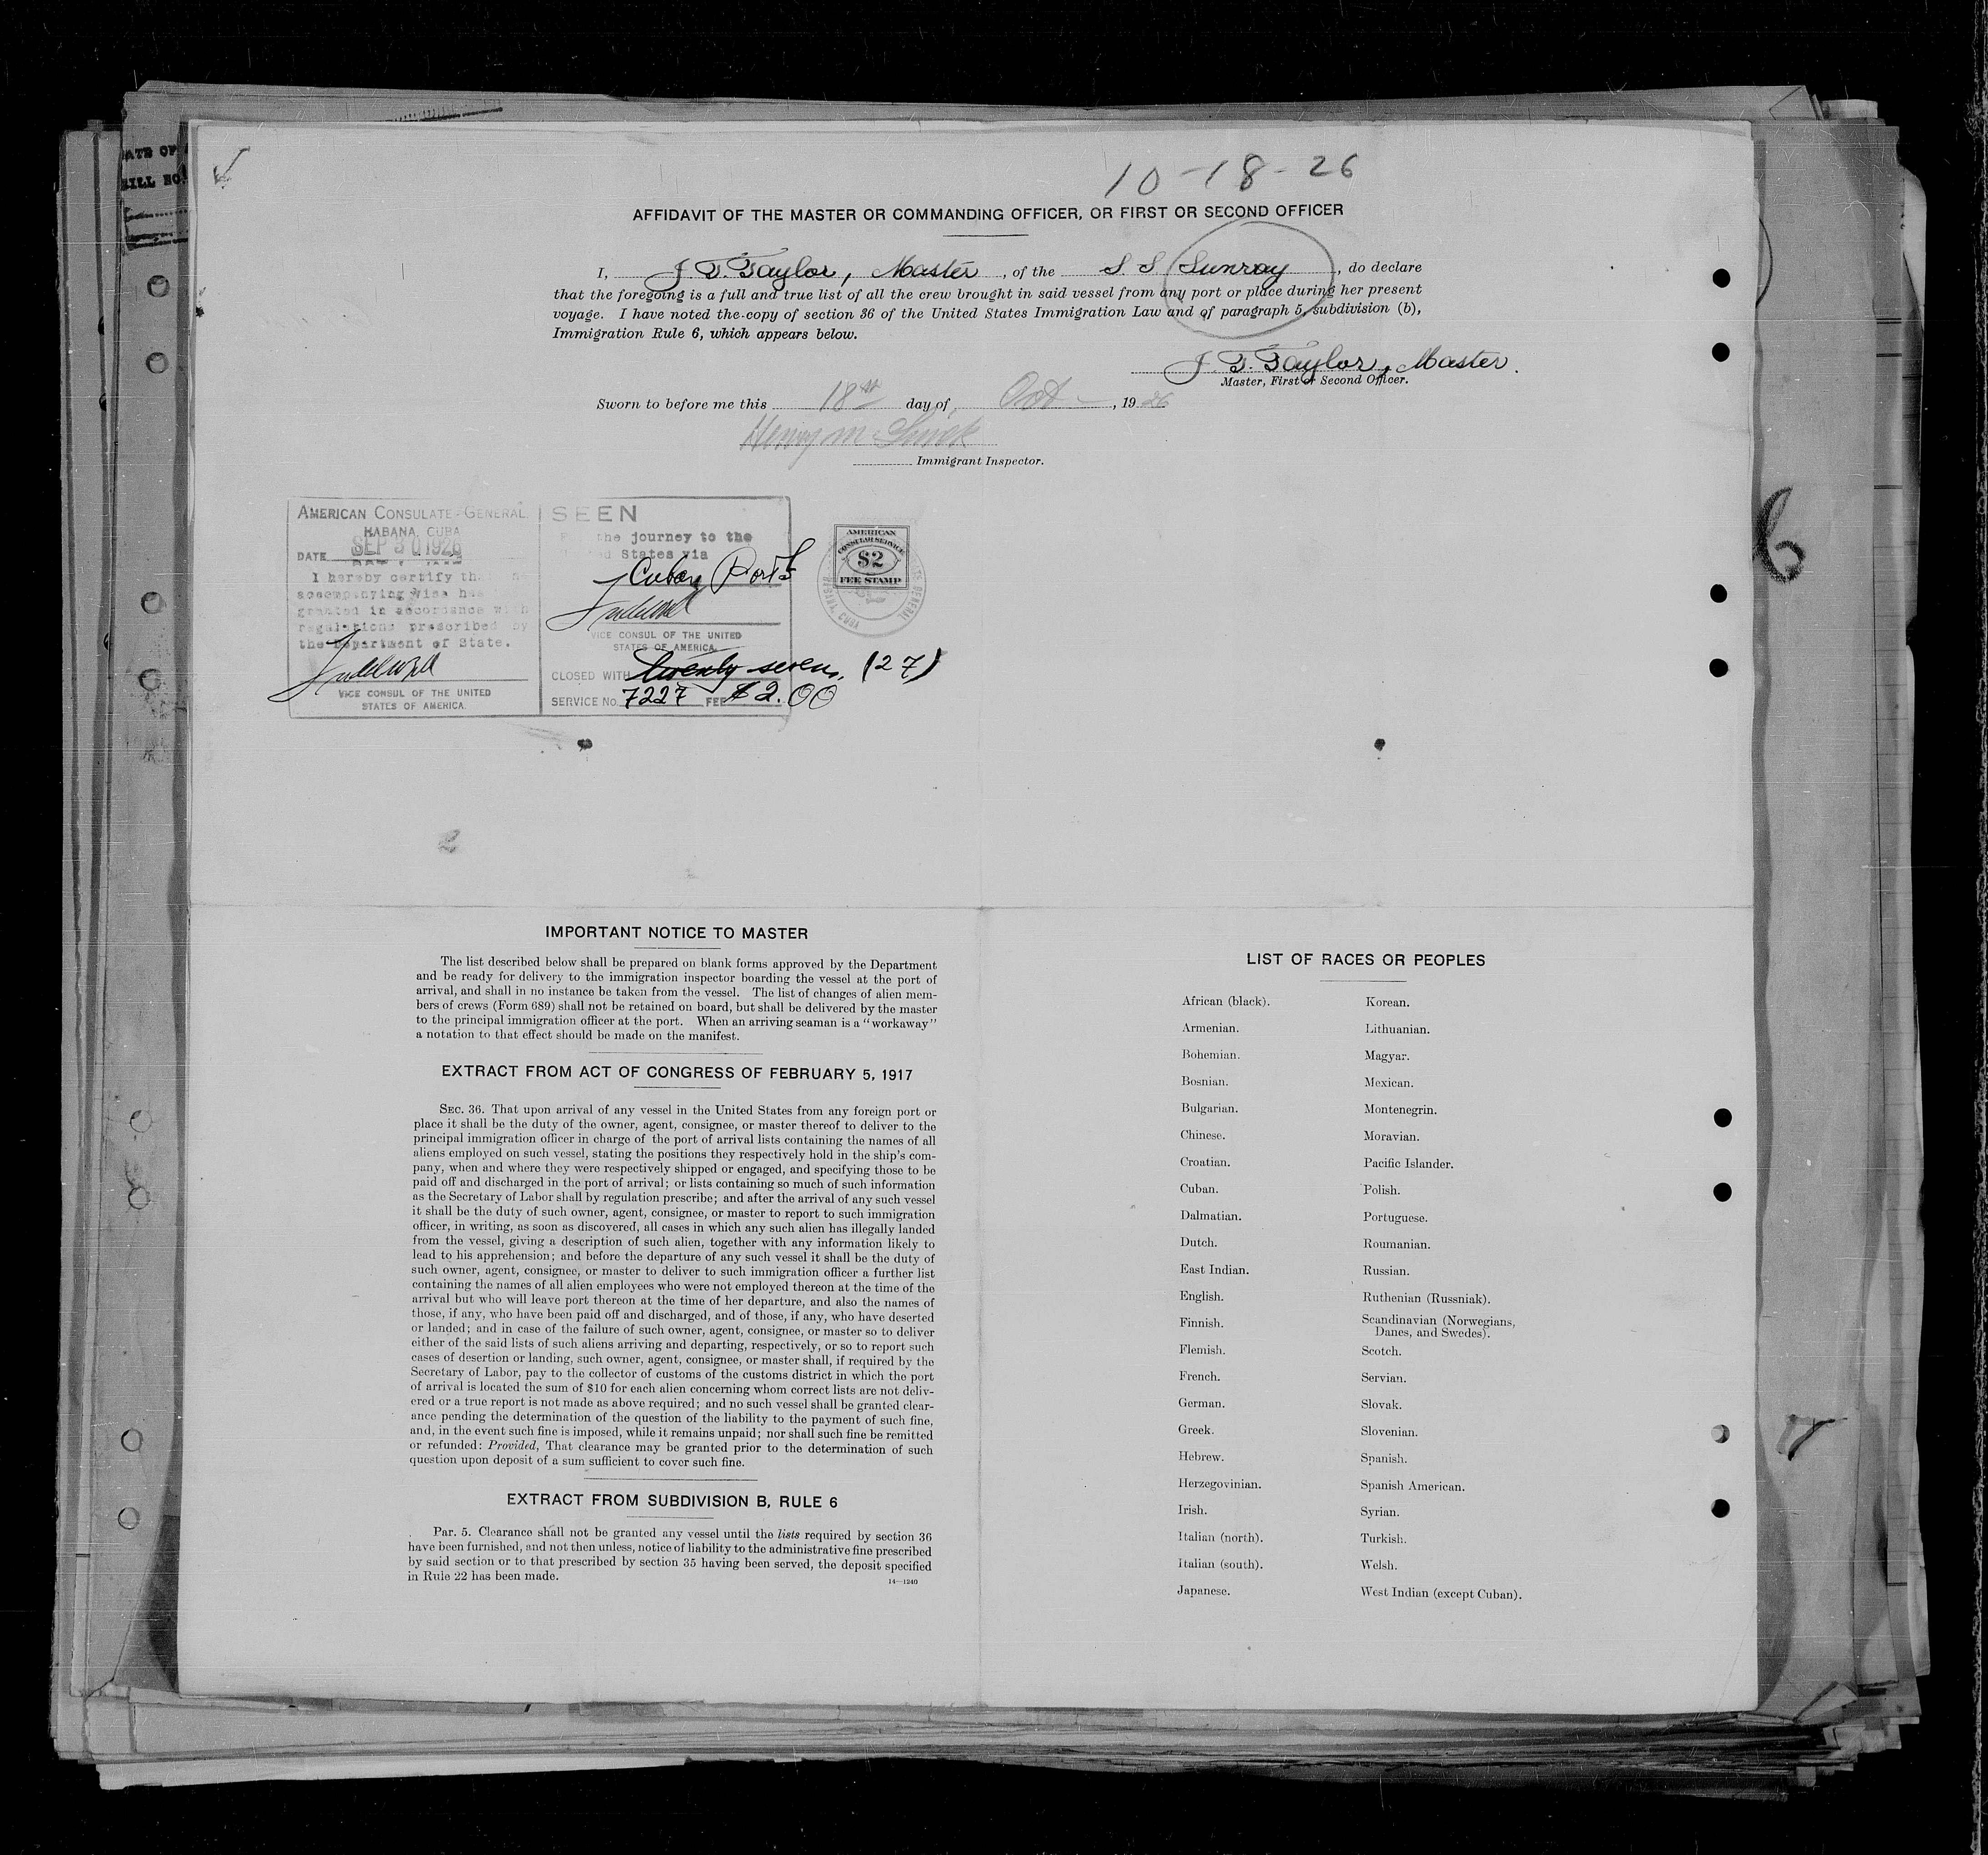 ATE OF
BILL NO.
10-18-26
AFFIDAVIT OF THE MASTER OR COMMANDING OFFICER, OR FIRST OR SECOND OFFICER
I, J. T. Taylor, Master, of the S. S. Sunray, do declare
that the foregoing is a full and true list of all the crew brought in said vessel from any port or place during her present
voyage. I have noted the copy of section 36 of the United States Immigration Law and of paragraph 5, subdivision (b),
Immigration Rule 6, which appears below.
J. T. Taylor, Master.
Master, First or Second Officer.
Sworn to before me this 18 day of Oct, 1926
Henry M
Immigrant Inspector.
AMERICAN CONSULATE-GENERAL.
HABANA, CUBA
DATE SEP 30 1926
I hereby certify
accompanying visa has
granted in accordance with
regulations prescribed by
the Department of State.
VICE CONSUL OF THE UNITED
STATES OF AMERICA.
SEEN
the journey to the
States via
Cuban Ports
VICE CONSUL OF THE UNITED
STATES OF AMERICA.
CLOSED WITH twenty seven, (27)
SERVICE No. 7227 FEE $2.00
AMERICAN
CONSULAR SERVICE
$2
FEE STAMP
6
IMPORTANT NOTICE TO MASTER
The list described below shall be prepared on blank forms approved by the Department
and be ready for delivery to the immigration inspector boarding the vessel at the port of
arrival, and shall in no instance be taken from the vessel. The list of changes of alien mem-
bers of crews (Form 689) shall not be retained on board, but shall be delivered by the master
to the principal immigration officer at the port. When an arriving seaman is a "workaway"
a notation to that effect should be made on the manifest.
EXTRACT FROM ACT OF CONGRESS OF FEBRUARY 5, 1917
SEC. 36. That upon arrival of any vessel in the United States from any foreign port or
place it shall be the duty of the owner, agent, consignee, or master thereof to deliver to the
principal immigration officer in charge of the port of arrival lists containing the names of all
aliens employed on such vessel, stating the positions they respectively hold in the ship's com-
pany, when and where they were respectively shipped or engaged, and specifying those to be
paid off and discharged in the port of arrival; or lists containing so much of such information
as the Secretary of Labor shall by regulation prescribe; and after the arrival of any such vessel
it shall be the duty of such owner, agent, consignee, or master to report to such immigration
officer, in writing, as soon as discovered, all cases in which any such alien has illegally landed
from the vessel, giving a description of such alien, together with any information likely to
lead to his apprehension; and before the departure of any such vessel it shall be the duty of
such owner, agent, consignee, or master to deliver to such immigration officer a further list
containing the names of all alien employees who were not employed thereon at the time of the
arrival but who will leave port thereon at the time of her departure, and also the names of
those, if any, who have been paid off and discharged, and of those, if any, who have deserted
or landed; and in case of the failure of such owner, agent, consignee, or master so to deliver
either of the said lists of such aliens arriving and departing, respectively, or so to report such
cases of desertion or landing, such owner, agent, consignee, or master shall, if required by the
Secretary of Labor, pay to the collector of customs of the customs district in which the port
of arrival is located the sum of $10 for each alien concerning whom correct lists are not deliv-
ered or a true report is not made as above required; and no such vessel shall be granted clear-
ance pending the determination of the question of the liability to the payment of such fine,
and, in the event such fine is imposed, while it remains unpaid; nor shall such fine be remitted
or refunded: Provided, That clearance may be granted prior to the determination of such
question upon deposit of a sum sufficient to cover such fine.
EXTRACT FROM SUBDIVISION B, RULE 6
Par. 5. Clearance shall not be granted any vessel until the lists required by section 36
have been furnished, and not then unless, notice of liability to the administrative fine prescribed
by said section or to that prescribed by section 35 having been served, the deposit specified
in Rule 22 has been made.
14—1240
LIST OF RACES OR PEOPLES
African (black). Korean.
Armenian. Lithuanian.
Bohemian. Magyar.
Bosnian. Mexican.
Bulgarian. Montenegrin.
Chinese. Moravian.
Croatian. Pacific Islander.
Cuban. Polish.
Dalmatian. Portuguese.
Dutch. Roumanian.
East Indian. Russian.
English. Ruthenian (Russniak).
Finnish. Scandinavian (Norwegians,
Danes, and Swedes).
Flemish. Scotch.
French. Servian.
German. Slovak.
Greek. Slovenian.
Hebrew. Spanish.
Herzegovinian. Spanish American.
Irish. Syrian.
Italian (north). Turkish.
Italian (south). Welsh.
Japanese. West Indian (except Cuban).